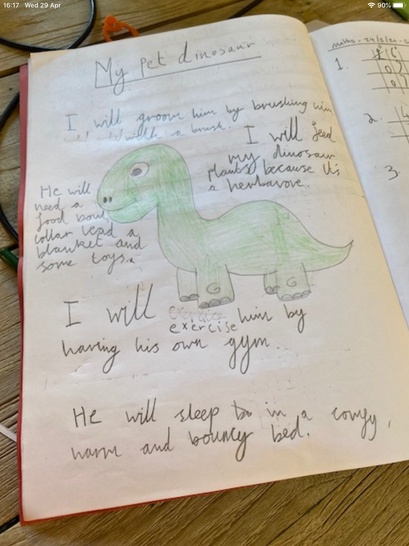 16:17 Wed 29 Apr
90%
My pet dinosaur
I will groom him by brushing him
with a brush.
I will feed
my dinosaur
plants because it's
a herbavore.
He will
need a
food bowl
collar lead a
blanket and
some toys.
I will exercise him by
having his own gym
He will sleep in a comfy,
warm and bouncy bed.
maths
1.
2.
3.